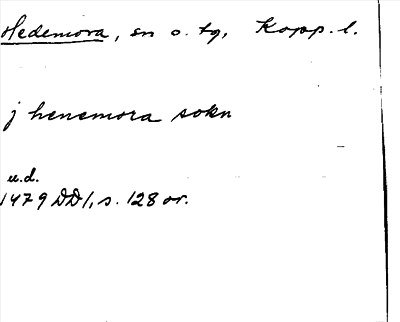 Hedemora, sn o. tg, Kopp. l.
j henemora sokn
u.d.
1479 DD 1, s. 128 or.